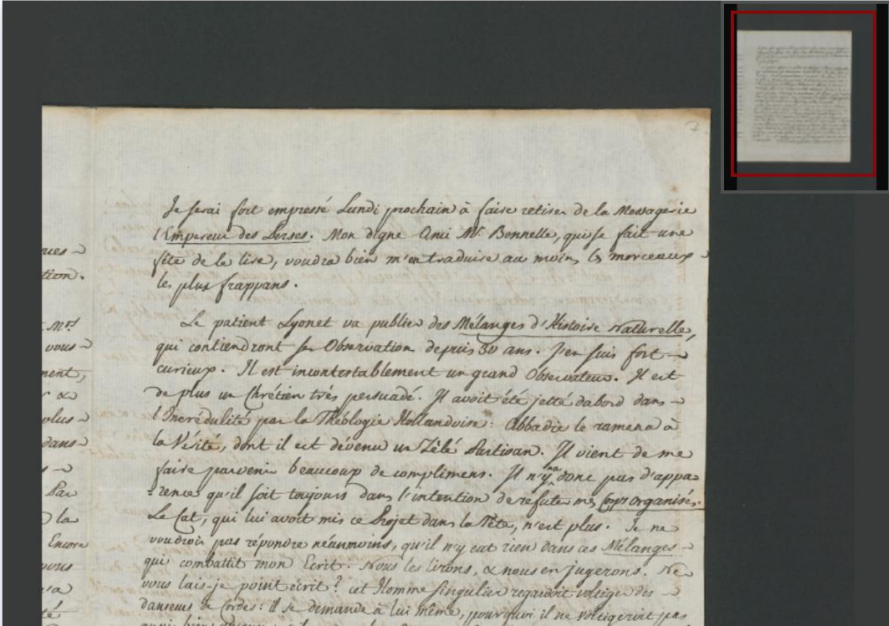 Je serai fort empressé Lundi prochain à faire retirer de la Messagerie
l'Empereur des Perses. Mon digne Ami Mr. Bennelle, qui se fait une
fête de le lire, voudra bien m'en traduire au moins les morceaux
les plus frappans.
Le patient Lyonet va publier des Mélanges d'Histoire Naturelle,
qui contiendront ses Observation depuis 30 ans. J'en suis fort
curieux. Il est incontestablement un grand Observateur. Il est
de plus un Chrétien très persuadé. Il avoit été jetté dabord dans
l'Incrédulité par la Théologie Hollandoise: Abbadie le ramena à
la Vérité, dont il est dévenu un Zélé Partisan. Il vient de me
faire parvenir beaucoup de complimens. Il n'y a donc pas d'appa
rence qu'il soit toujours dans l'intention de réfuter mes Corps organisés.
Le Cat, qui lui avoit mis ce Projet dans la Tête, n'est plus. Je ne
voudrois pas répondre néanmoins, qu'il n'y eut rien dans ces Mélanges
qui combattit mon Ecrit. Nous les lirons, & nous en jugerons. Ne
vous l'ais-je point écrit? cet Homme singulier regardoit voltiger des
danseurs de Corde: il se demande à lui même, pourquoi il ne voltigeroit pas
ques
tion.
Mrs
vous
ment,
plus
dans
Par
la
Encore
vous
sa
té